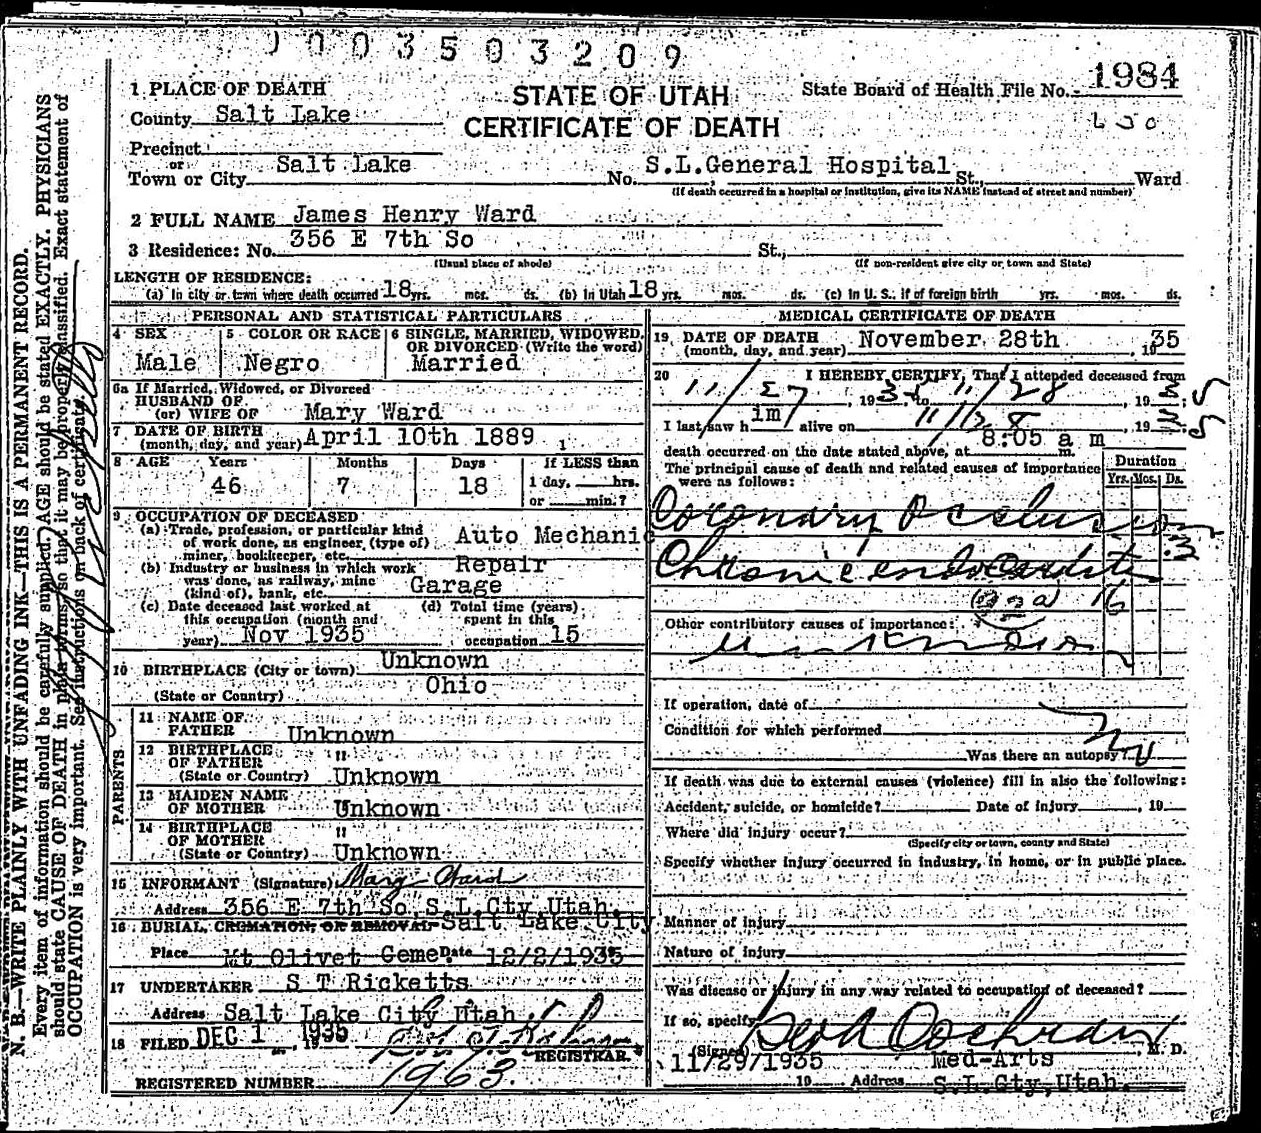 1003503209
1 PLACE OF DEATH
STATE OF UTAH
CERTIFICATE OF DEATH
State Board of Health File No. 1984
County Salt Lake
Precinct
or
Town or City Salt Lake No. S.L.General Hospital St., Ward
(If death occurred in a hospital or institution, give its NAME instead of street and number)
2 FULL NAME James Henry Ward
3 Residence: No. 356 E 7th So St.,
(Usual place of abode) (If non-resident give city or town and State)
LENGTH OF RESIDENCE:
(a) In city or town where death occurred 18 yrs. mos. ds. (b) In Utah 18 yrs. mos. ds. (c) In U. S., if of foreign birth yrs. mos. ds.
PERSONAL AND STATISTICAL PARTICULARS
4 SEX
Male
5 COLOR OR RACE
Negro
6 SINGLE, MARRIED, WIDOWED, OR DIVORCED (Write the word)
Married
6a If Married, Widowed, or Divorced
HUSBAND OF
(or) WIFE OF Mary Ward
7 DATE OF BIRTH
(month, day, and year) April 10th 1889
8 AGE Years Months Days If LESS than
46 7 18 1 day, hrs.
or min.?
9 OCCUPATION OF DECEASED
(a) Trade, profession, or particular kind
of work done, as engineer (type of) Auto Mechanic
miner, bookkeeper, etc.
(b) Industry or business in which work Repair
was done, as railway, mine
(kind of), bank, etc. Garage
(c) Date deceased last worked at (d) Total time (years)
this occupation (month and spent in this
year) Nov 1935 occupation 15
10 BIRTHPLACE (City or town) Unknown
(State or Country) Ohio
PARENTS
11 NAME OF
FATHER Unknown
12 BIRTHPLACE "
OF FATHER
(State or Country) Unknown
13 MAIDEN NAME
OF MOTHER Unknown
14 BIRTHPLACE "
OF MOTHER
(State or Country) Unknown
15 INFORMANT (Signature) Mary Ward
Address 356 E 7th So S L Cty Utah
16 BURIAL, CREMATION, OR REMOVAL Salt Lake City
Place Mt Olivet Ceme Date 12/2/1935
17 UNDERTAKER S T Ricketts
Address Salt Lake City Utah
18 FILED DEC 1 1935
REGISTRAR.
REGISTERED NUMBER 1963.
MEDICAL CERTIFICATE OF DEATH
19 DATE OF DEATH
(month, day, and year) November 28th, 1935
20 I HEREBY CERTIFY, That I attended deceased from
11/27, 1935 to 11/28, 193
I last saw him alive on 11/28, 193
death occurred on the date stated above, at 8:05 a m m.
The principal cause of death and related causes of importance
were as follows:
Duration
Yrs. Mos. Ds.
Coronary Occlusion
Chronic endocarditis
Other contributory causes of importance:
unknown
If operation, date of
Condition for which performed
Was there an autopsy? No
If death was due to external causes (violence) fill in also the following:
Accident, suicide, or homicide? Date of injury , 19
Where did injury occur?
(Specify city or town, county and State)
Specify whether injury occurred in industry, in home, or in public place.
Manner of injury
Nature of injury
Was disease or injury in any way related to occupation of deceased?
If so, specify
(Signed) Cochran, M. D.
11/29/1935 19 Address Med-Arts
S.L.Cty,Utah.
N. B.—WRITE PLAINLY WITH UNFADING INK—THIS IS A PERMANENT RECORD.
Every item of information should be carefully supplied. AGE should be stated EXACTLY. PHYSICIANS
should state CAUSE OF DEATH in plain terms, so that it may be properly classified. Exact statement of
OCCUPATION is very important. See instructions on back of certificate.